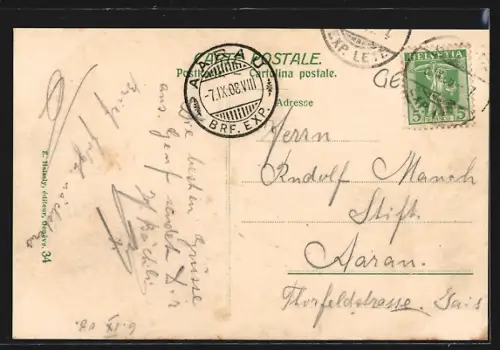 CARTE POSTALE.
Postkarte. Cartolina postale.
Adresse
AARAU
-7.IX.08.VIII
BRF. EXP.
EXP. LETT.
HELVETIA
5 5
FRANCO
Herrn
Rudolf Manch
Stift.
Aarau.
Thorfeldstrasse. Gais
Die besten Grüsse
aus Genf sendet Dir
Brief folgt
6.IX 08.
édileur, Genève. 34